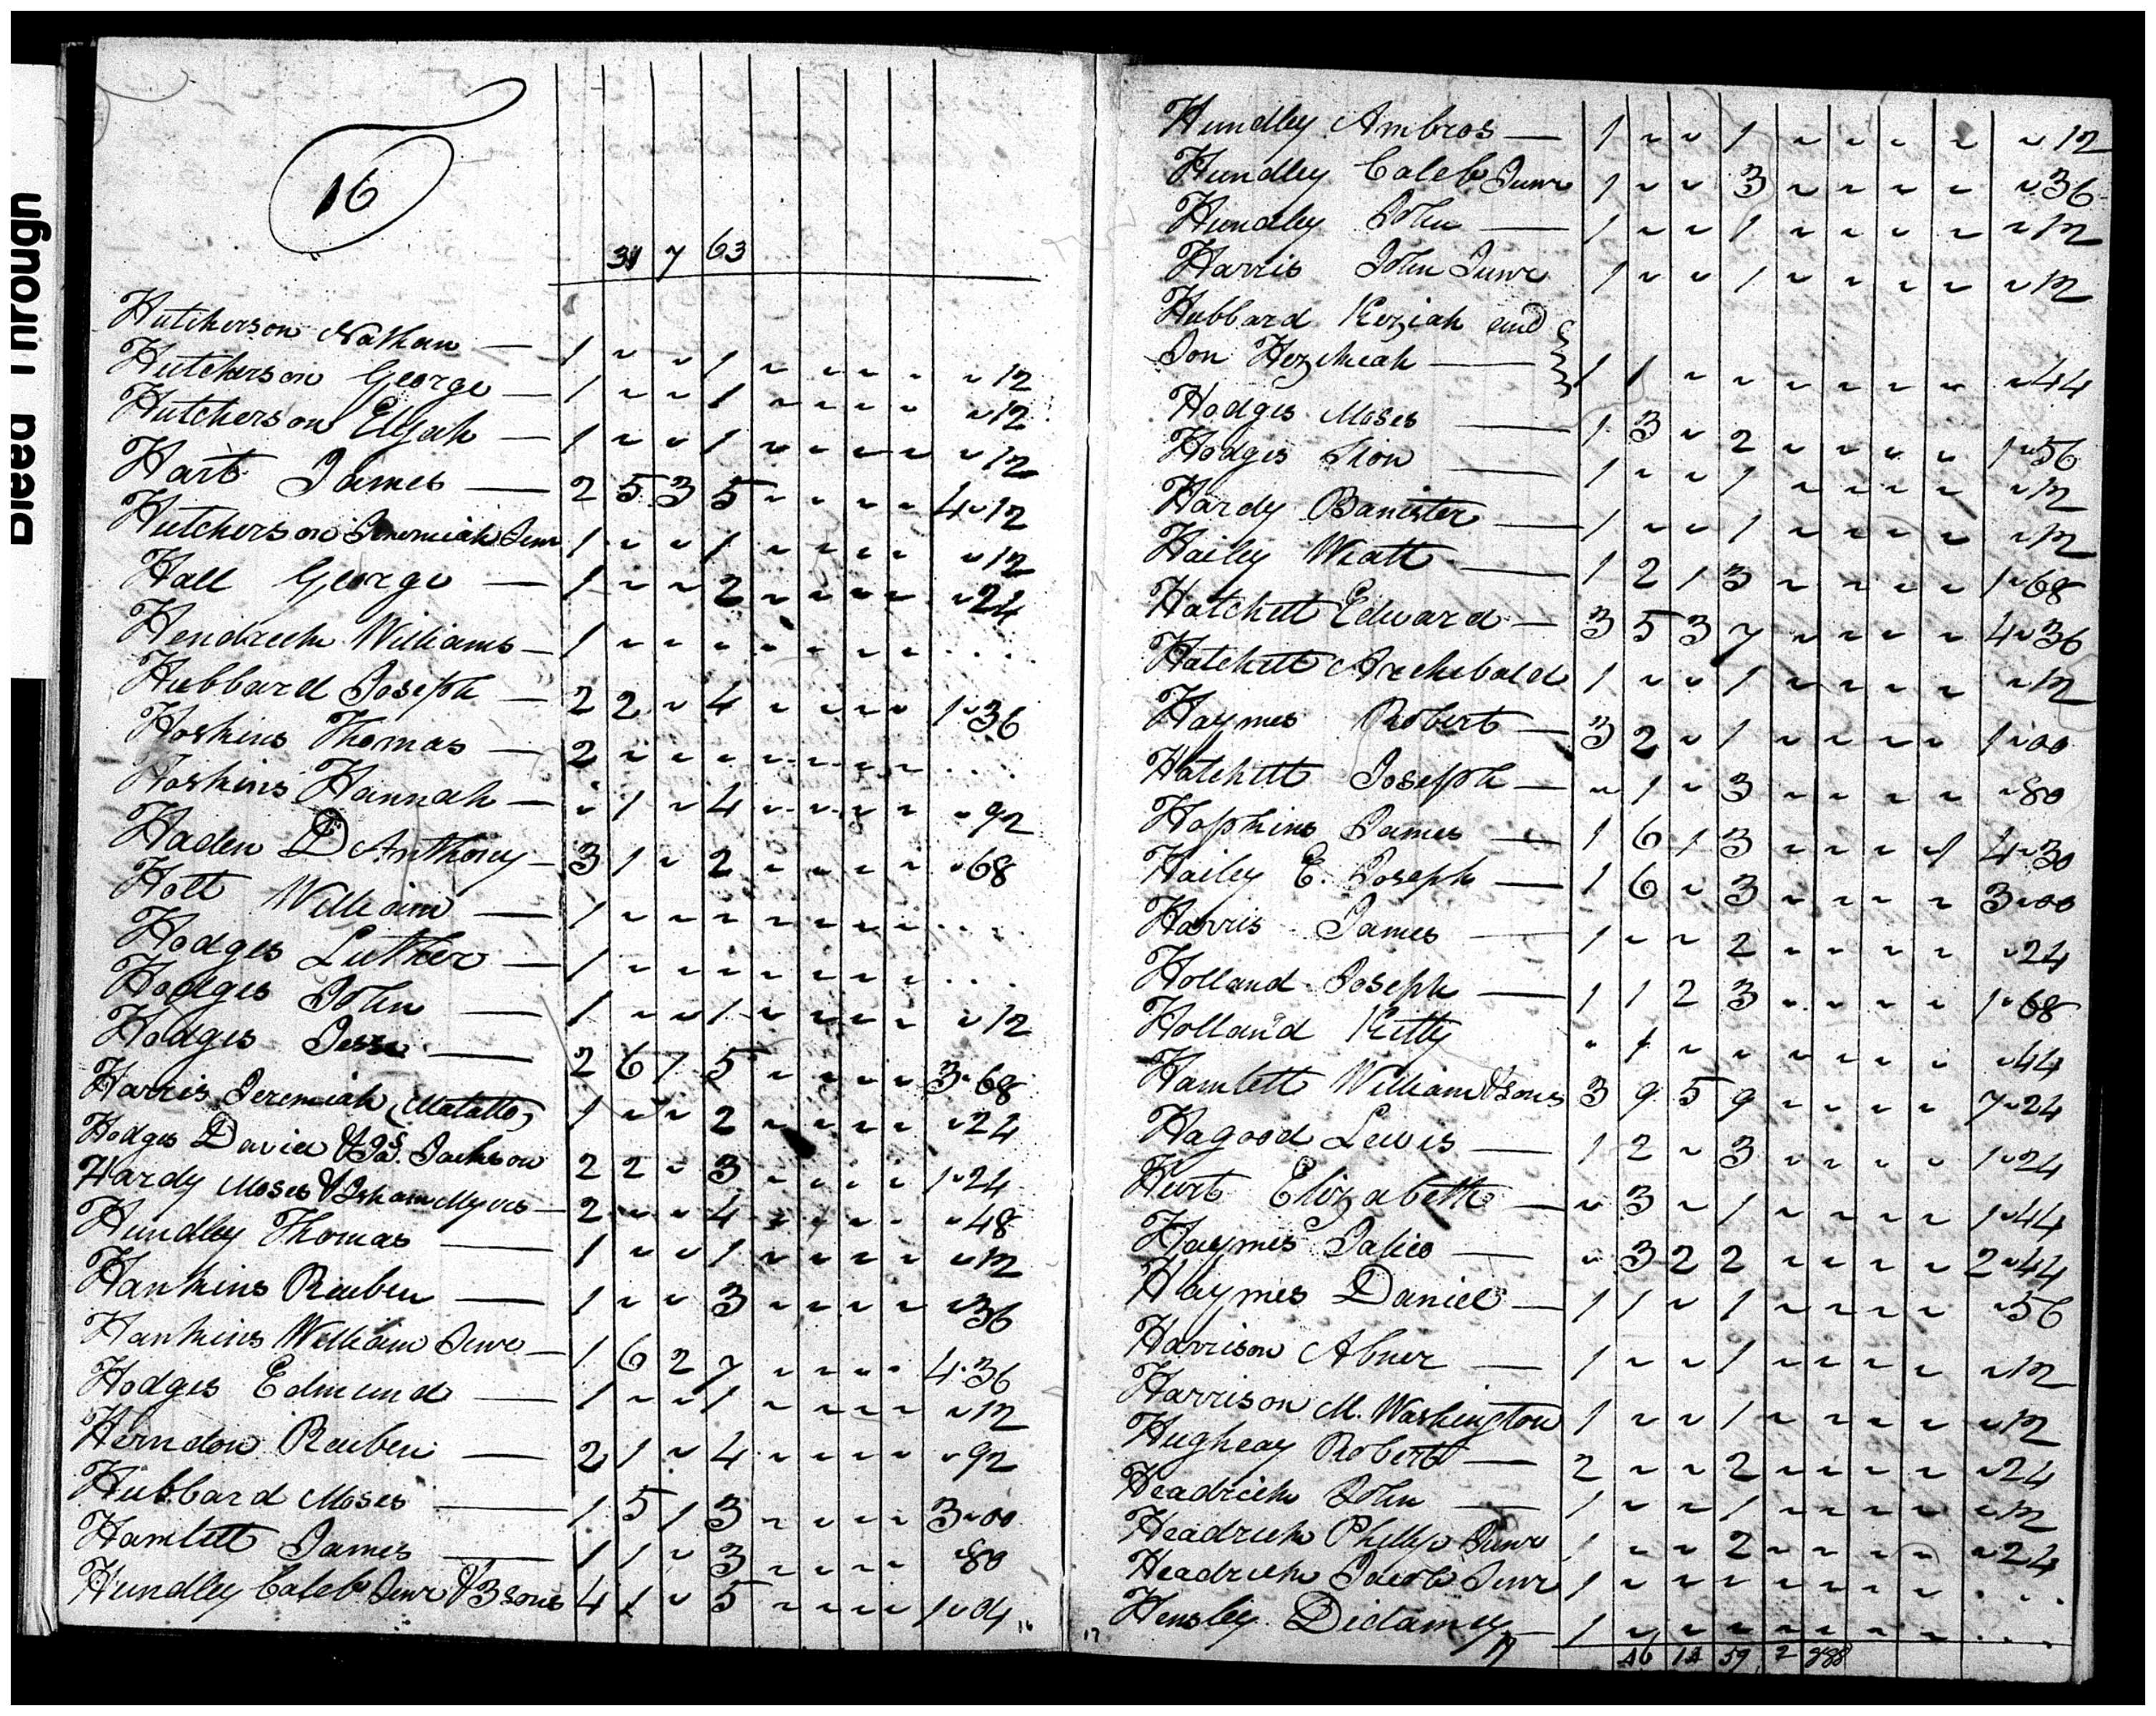 16
31 7 63
Hutcherson Nathan — 1 ~ ~ 1 ~ ~ ~ ~ ~12
Hutcherson George — 1 ~ ~ 1 ~ ~ ~ ~ ~12
Hutcherson Elijah — 1 ~ ~ 1 ~ ~ ~ ~ ~12
Hart James — 2 5 3 5 ~ ~ ~ ~ 4~12
Hutcherson Jeremiah Junr 1 ~ ~ 1 ~ ~ ~ ~ ~12
Hall George — 1 ~ ~ 2 ~ ~ ~ ~ ~24
Hendrick Williams — 1 ~ ~ ~ ~ ~ ~ ~ . . .
Hubbard Joseph — 2 2 ~ 4 ~ ~ ~ ~ 1~36
Hoskins Thomas — 2 ~ ~ ~ ~ ~ ~ ~ . . .
Hoskins Hannah — ~ 1 ~ 4 ~ ~ ~ ~ ~92
Haden D Anthony — 3 1 ~ 2 ~ ~ ~ ~ ~68
Holt William — 1 ~ ~ ~ ~ ~ ~ ~ . . .
Hodges Luther — 1 ~ ~ ~ ~ ~ ~ ~ . . .
Hodges John — 1 ~ ~ 1 ~ ~ ~ ~ ~12
Hodges Jesse — 2 6 1 5 ~ ~ ~ ~ 3~68
Harris Jeremiah (Malatto) 1 ~ ~ 2 ~ ~ ~ ~ ~24
Hodges David & Jas. Jackson 2 2 ~ 3 ~ ~ ~ ~ 1~24
Hardy Moses & Isham Myers — 2 ~ ~ 4 ~ ~ ~ ~ ~48
Hundley Thomas — 1 ~ ~ 1 ~ ~ ~ ~ ~12
Hankins Reuben — 1 ~ ~ 3 ~ ~ ~ ~ ~36
Hankins William Junr — 1 6 2 7 ~ ~ ~ ~ 4~36
Hodges Edmund — 1 ~ ~ 1 ~ ~ ~ ~ ~12
Herndon Reuben — 2 1 ~ 4 ~ ~ ~ ~ ~92
Hubbard Moses — 1 5 1 3 ~ ~ ~ ~ 3~00
Hamlett James — 1 1 ~ 3 ~ ~ ~ ~ ~80
Hundley Caleb Senr & 3 sons 4 1 ~ 5 ~ ~ ~ ~ 1~04
16
Hundley Ambros — 1 ~ ~ 1 ~ ~ ~ ~ ~12
Hundley Caleb Junr 1 ~ ~ 3 ~ ~ ~ ~ ~36
Hundley John — 1 ~ ~ 1 ~ ~ ~ ~ ~12
Harris John Junr 1 ~ ~ 1 ~ ~ ~ ~ ~12
Hubbard Keziah and
Son Hezekiah — 1 1 ~ ~ ~ ~ ~ ~ ~44
Hodges Moses — 1 3 ~ 2 ~ ~ ~ ~ 1~56
Hodges Sion — 1 ~ ~ 1 ~ ~ ~ ~ ~12
Hardy Banister — 1 ~ ~ 1 ~ ~ ~ ~ ~12
Hailey Wiatt — 1 2 1 3 ~ ~ ~ ~ 1~68
Hatchett Edward — 3 5 3 7 ~ ~ ~ ~ 4~36
Hatchett Archibald 1 ~ ~ 1 ~ ~ ~ ~ ~12
Haymes Robert — 3 2 ~ 1 ~ ~ ~ ~ 1~00
Hatchett Joseph — ~ 1 ~ 3 ~ ~ ~ ~ ~80
Hopkins James — 1 6 1 3 ~ ~ ~ 1 4~30
Hailey E. Joseph — 1 6 ~ 3 ~ ~ ~ ~ 3~00
Harris James — 1 ~ ~ 2 ~ ~ ~ ~ ~24
Holland Joseph — 1 1 2 3 ~ ~ ~ ~ 1~68
Holland Kitty ~ 1 ~ ~ ~ ~ ~ ~ ~44
Hamlett William & sons 3 9 5 9 ~ ~ ~ ~ 7~24
Hagood Lewis — 1 2 ~ 3 ~ ~ ~ ~ 1~24
Hurt Elizabeth — ~ 3 ~ 1 ~ ~ ~ ~ 1~44
Haymes — ~ 3 2 2 ~ ~ ~ ~ 2~44
Haymes Daniel — 1 1 ~ 1 ~ ~ ~ ~ ~56
Harrison Abner — 1 ~ ~ 1 ~ ~ ~ ~ ~12
Harrison M. Washington 1 ~ ~ 1 ~ ~ ~ ~ ~12
Hugheay Robert — 2 ~ ~ 2 ~ ~ ~ ~ ~24
Headrick John — 1 ~ ~ 1 ~ ~ ~ ~ ~12
Headrick Phillip Junr 1 ~ ~ 2 ~ ~ ~ ~ ~24
Headrick Jacob Junr 1 ~ ~ ~ ~ ~ ~ ~ . . .
Hensley Didamy — 1 ~ ~ ~ ~ ~ ~ ~ . . .
17
46 14 59 2